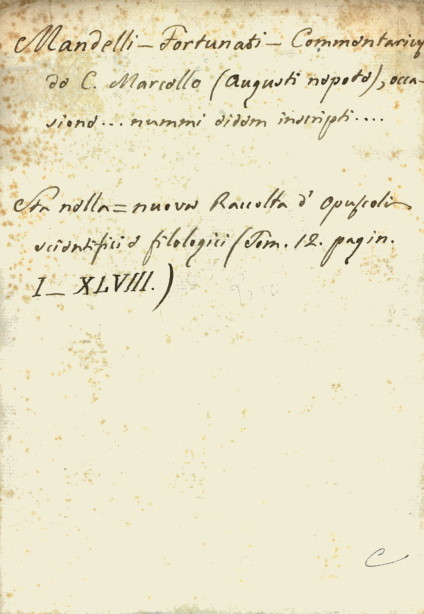 Mandelli - Fortunati - Commentarius
de C. Marcello (Augusti nepote), occa-
sione... nummi eidem inscripti....
Sta nella = nuova Raccolta d'opuscoli
scientifici e filologici (Tom. 12. pagin.
I_ XLVIII.)
C